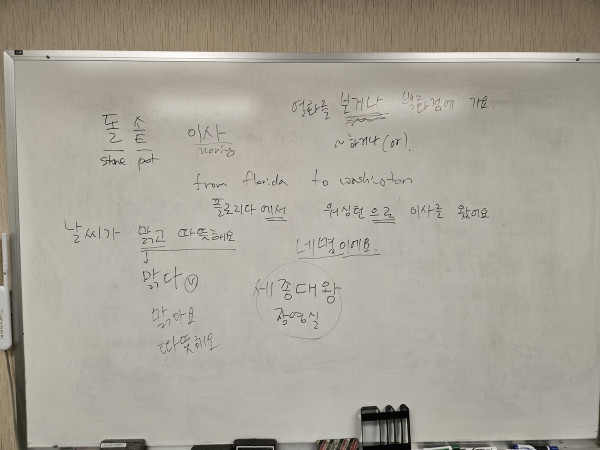 영화를 보거나 백화점에 가요
~하거나 (or).
돌 솥
stone pot
이사
moving
from florida to washington
플로리다에서 워싱턴으로 이사를 왔어요
날씨가 맑고 따뜻해요
네 명이에요.
맑다 (V)
맑아요
따뜻해요
세종대왕
장영실